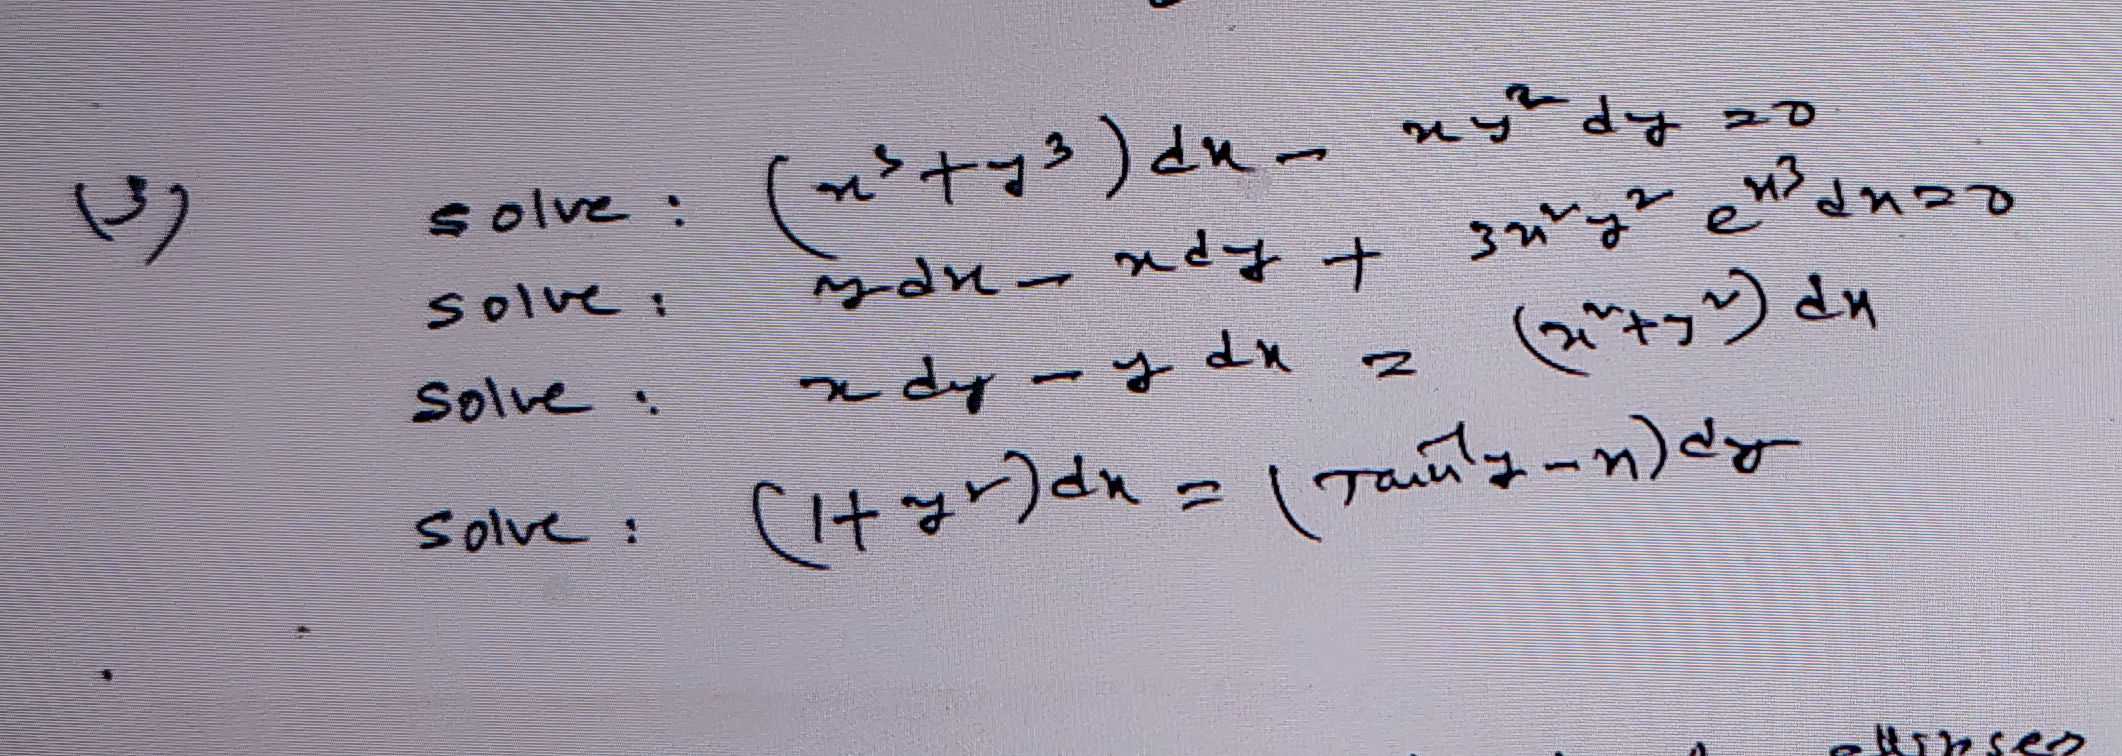 (3) solve : (x³+y³) dx - xy² dy = 0
solve : ydx - xdy + 3x²y² e^{x³} dx = 0
solve : x dy - y dx = (x²+y²) dx
solve : (1+y²)dx = (Tan⁻¹y - x)dy
ellipses